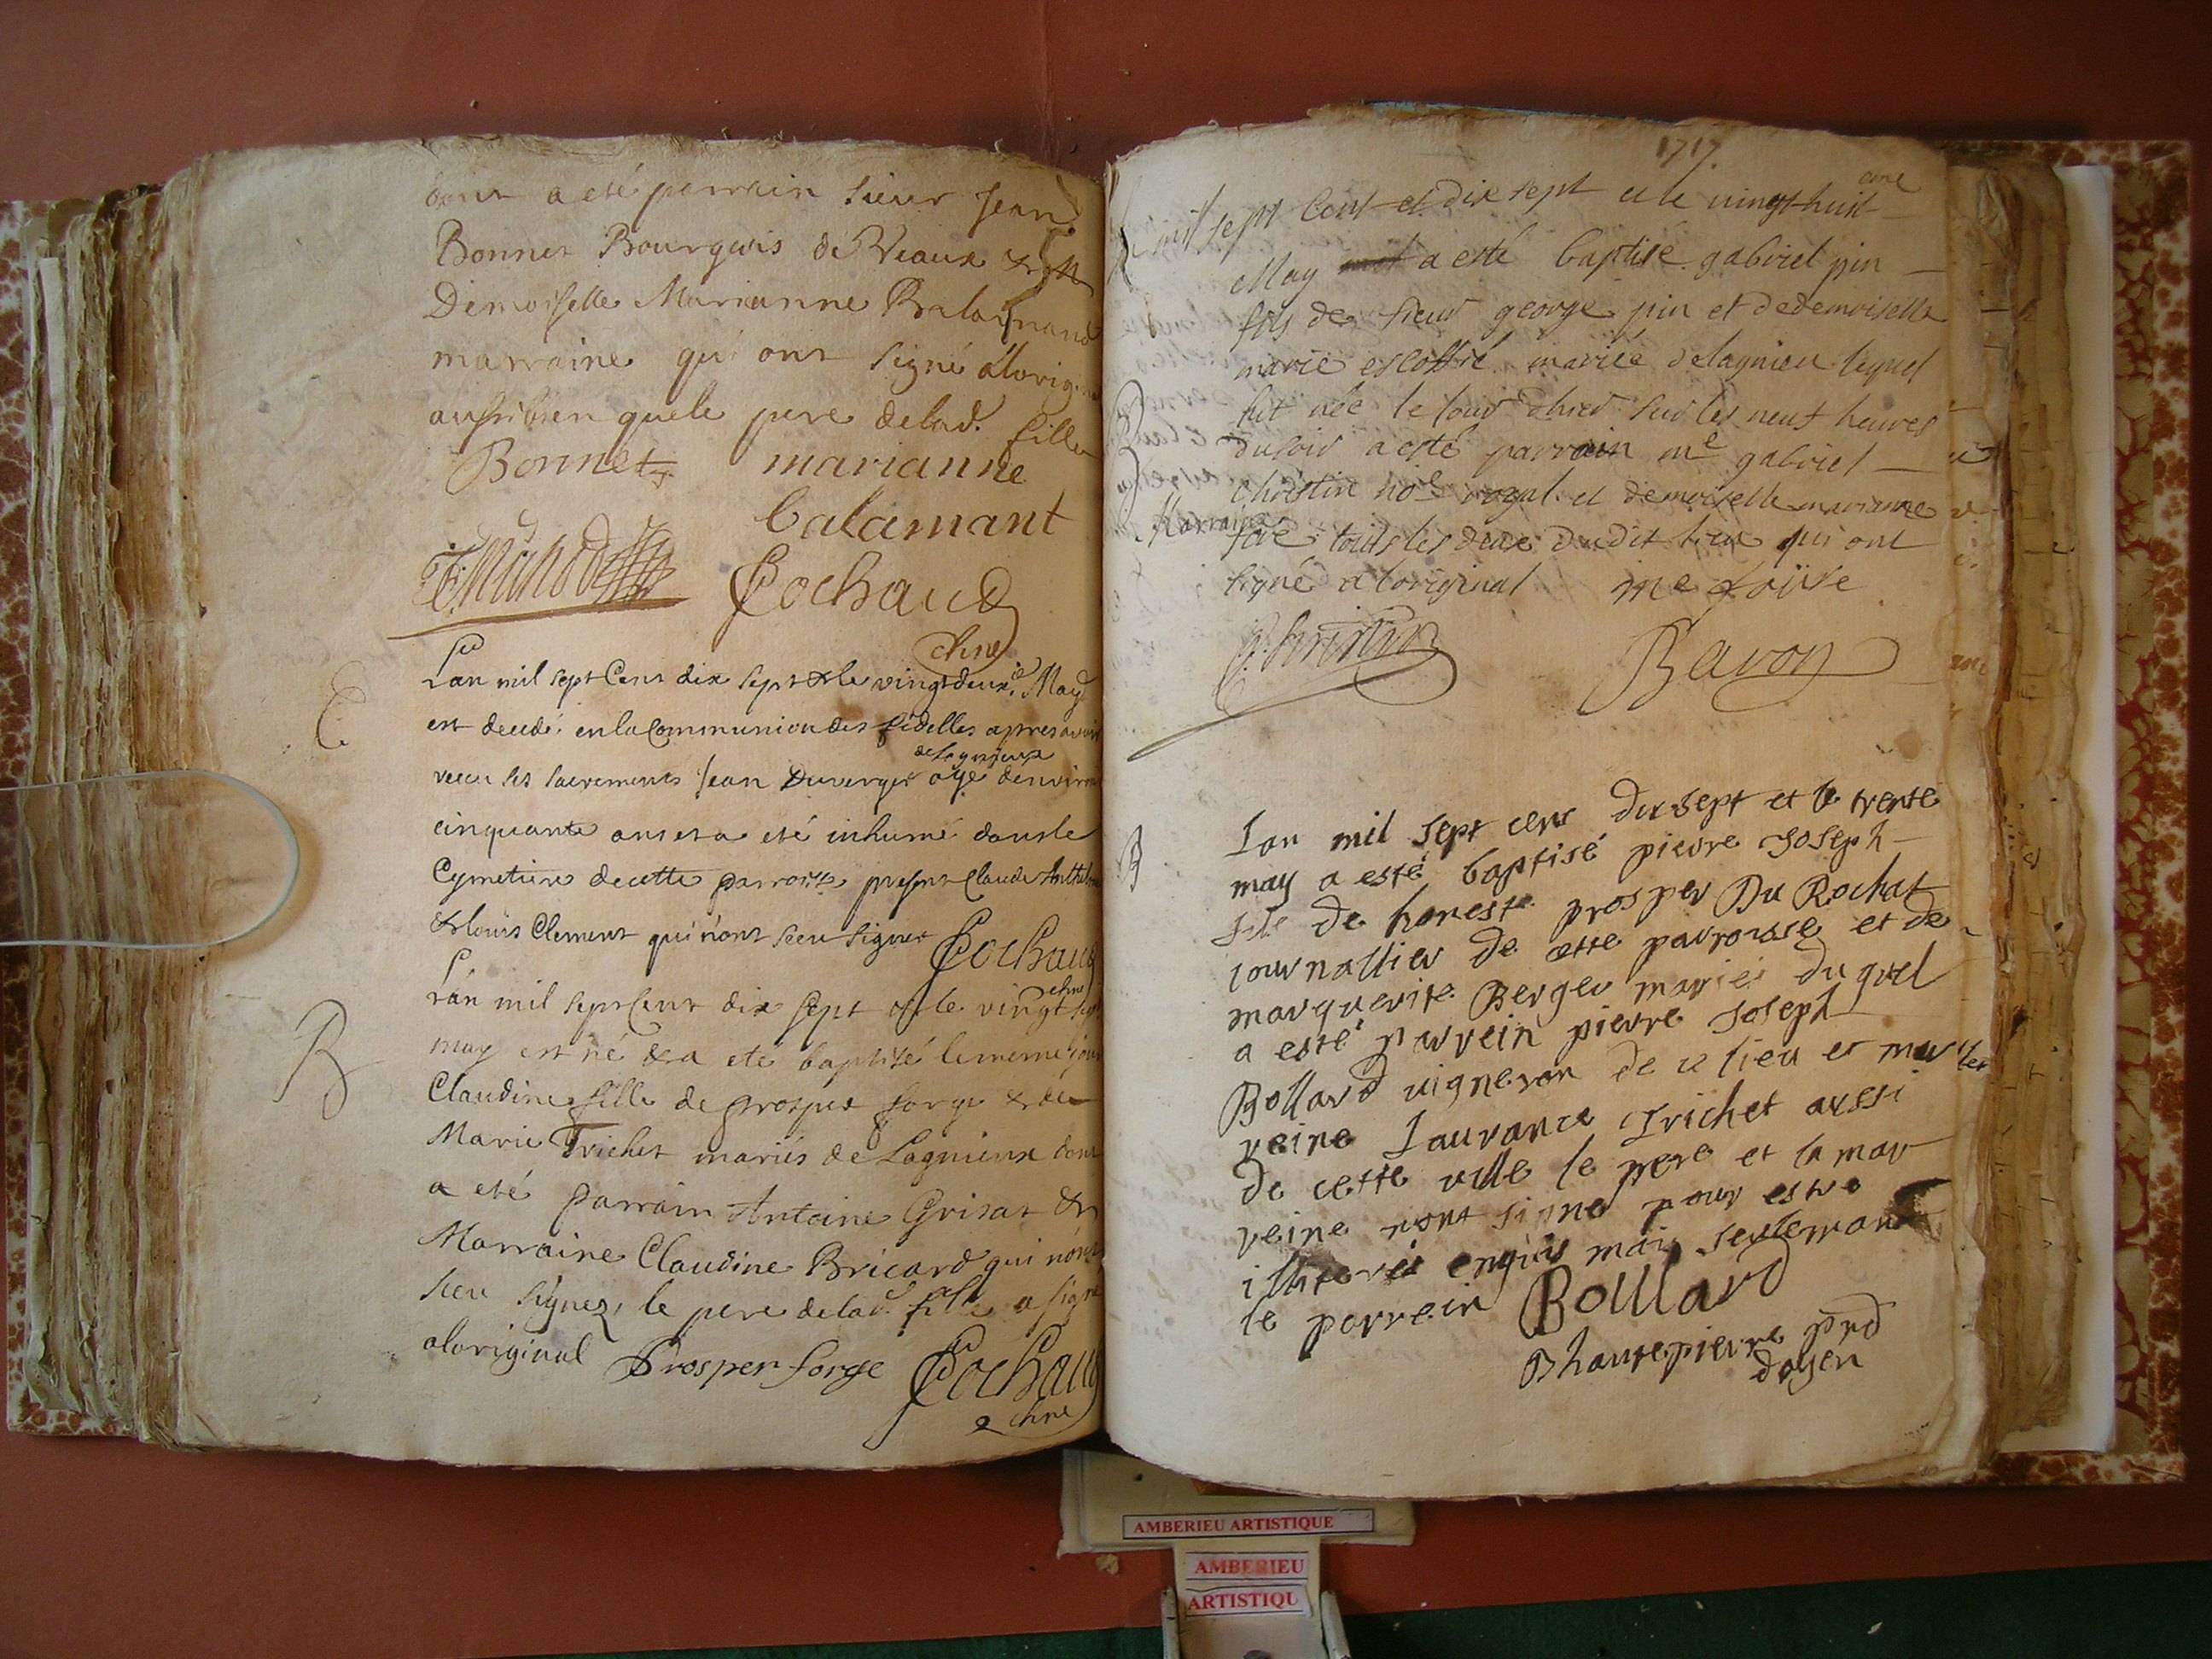 dont a eté parrain sieur Jean
Bonnet Bourgeois de Veaux &
Demoiselle Marianne
marraine qui ont signé à l'origi
aussibien quele pere delad. fille
Bonnet marianne
balamant
Cochaud
chne
C.
Lan mil sept Cent dix sept & le vingt deuxe. May
est decedé en la Communion des fidelles apres avoir
de Lagnieux
receu les sacrements Jean Duverger agé denviron
cinquante ans et a eté inhumé dans le
Cymetiere de cette parroisse present Claude Anthelme
& louis Clement qui n'ont sceu signer Cochaud
chne
B
L'an mil sept Cent dix sept & le vingt sept
may est né & a eté baptisé le meme jour
Claudine fille de prosper forge & de
Marie Trichet mariés de Lagnieux dont
a eté parrain Antoine Grisat &
Marraine Claudine Bricard qui n'ont
sceu signez, le pere delad. fille a signé
a loriginal Prosper forge Cochaud
chne
1717.
mil sept Cent et dix sept et le vingt huit
eme
May a esté baptisé gabriel pin
fils de sieur george pin et de demoiselle
marie escoffié mariée de lagnieu lequel
fut née le jour d'hier sur les neuf heures
du soir a esté parrain me gabriel
christin noe. royal et demoiselle marianne
Marraine
tous les deux dudit lieu qui ont
signé a loriginal
Christin
Bavoz
B
Lan mil sept cens dix sept et le trente
may a esté baptisé pierre Joseph
fils de honeste prosper Du Rochat
journallier de cette parroisse et de
marguerite Berger mariés du quel
a esté parrein pierre Joseph
Bollard vigneron de ce lieu et mar
reine Laurance Trichet aussi
de cette ville le pere et la mar
reine nont signé pour estre
illiterés enquis mais seulemant
le parrein Bolllard
Dhautepierre prd
doyen
AMBERIEU ARTISTIQUE
AMBERIEU
ARTISTIQU